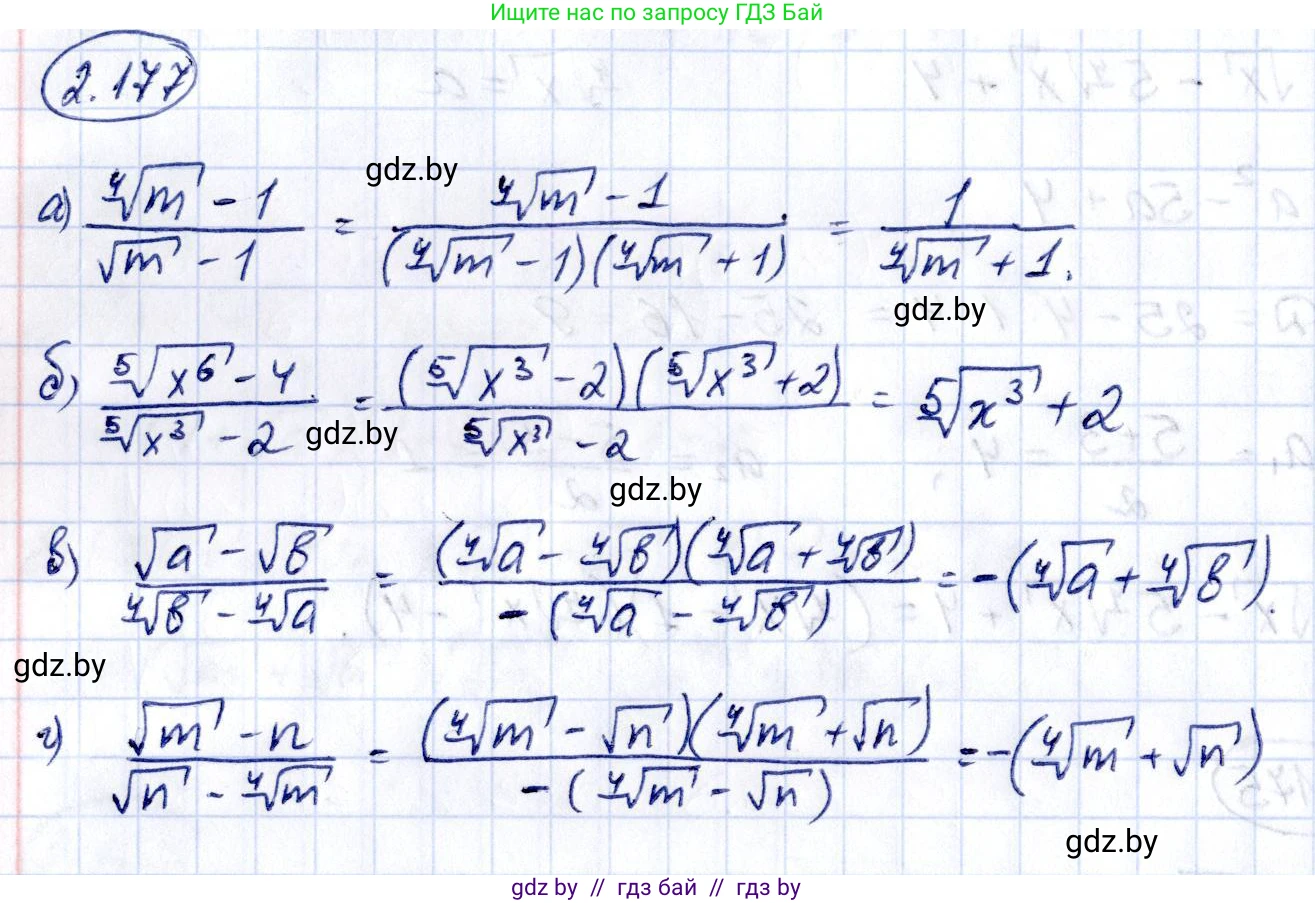 Ищите нас по запросу ГДЗ Бай
2.177
gdz.by
а) (⁴√m - 1)/(√m - 1) = (⁴√m - 1)/((⁴√m - 1)(⁴√m + 1)) = 1/(⁴√m + 1).
gdz.by
б) (⁵√x⁶ - 4)/(⁵√x³ - 2) = ((⁵√x³ - 2)(⁵√x³ + 2))/(⁵√x³ - 2) = ⁵√x³ + 2
gdz.by
gdz.by
в) (√a - √b)/(⁴√b - ⁴√a) = ((⁴√a - ⁴√b)(⁴√a + ⁴√b))/(-(⁴√a - ⁴√b)) = -(⁴√a + ⁴√b).
gdz.by
г) (√m - n)/(√n - ⁴√m) = ((⁴√m - √n)(⁴√m + √n))/(-(⁴√m - √n)) = -(⁴√m + √n)
gdz.by
gdz by // гдз бай // гдз by